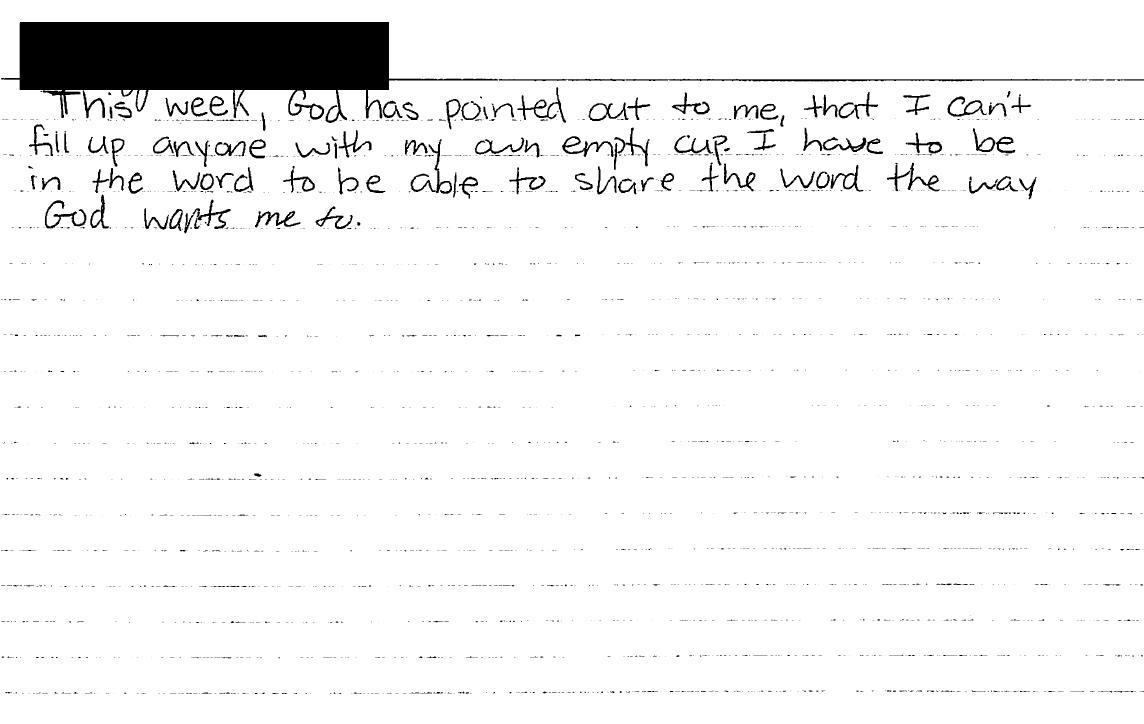 This week, God has pointed out to me, that I can't
fill up anyone with my own empty cup. I have to be
in the word to be able to share the word the way
God wants me to.